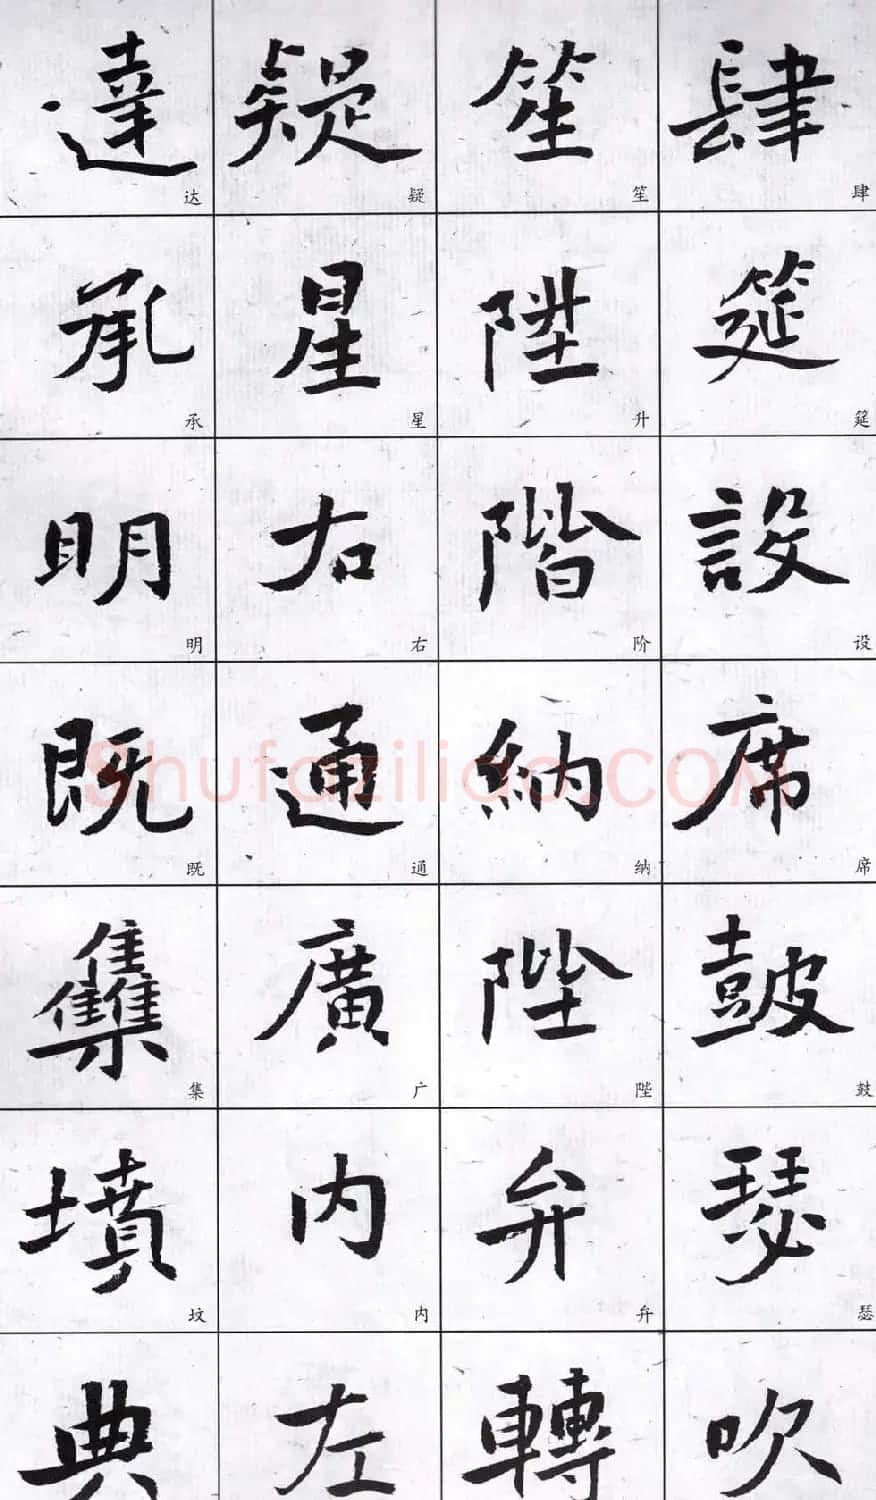 肆筵設席鼓瑟吹
肆筵设席鼓瑟
笙陞階納陛弁轉
笙升阶纳陛弁
疑星右通廣内左
疑星右通广内
達承明既雧墳典
达承明既集坟
Shufaziliao.COM